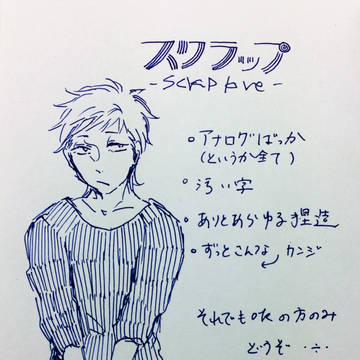 スクラップ
-scrap love-
・アナログばっか
(というか全て)
・汚い字
・ありとあらゆる捏造
・ずっとこんな カンジ
それでもokの方のみ
どうぞ